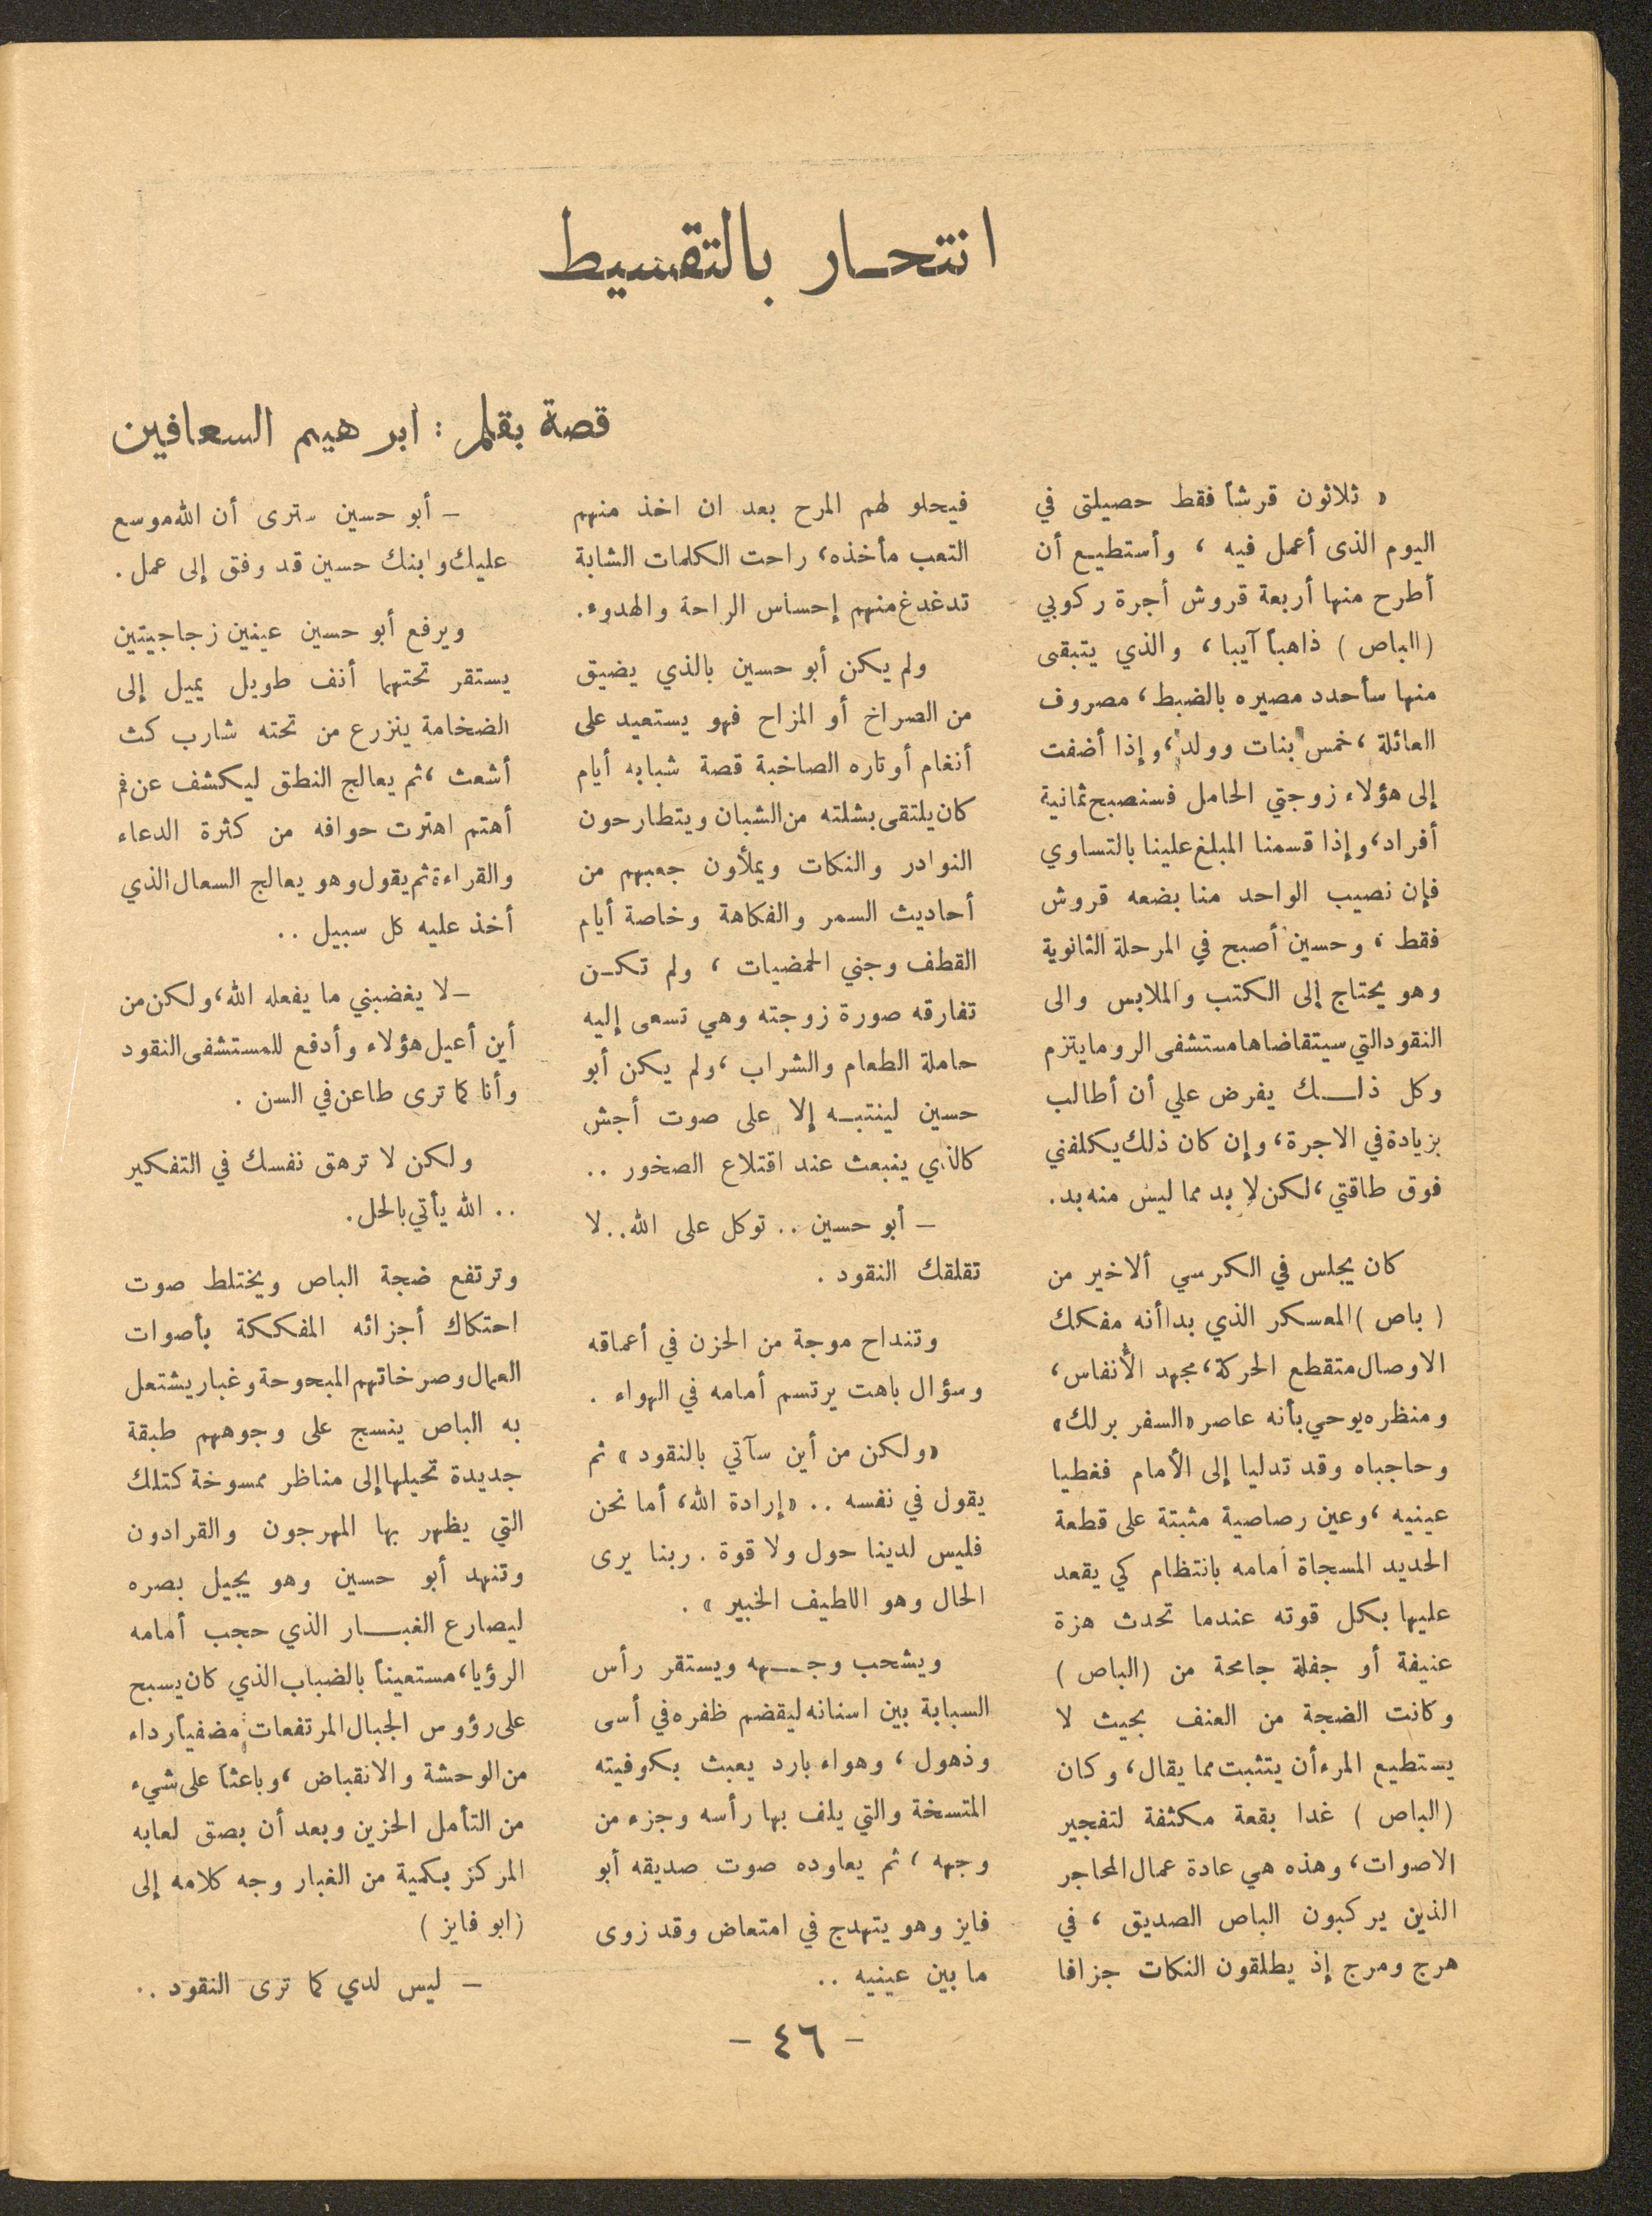 انتحار بالتقسيط
قصة بقلم : ابرهيم السعافين
« ثلاثون قرشاً فقط حصيلتى في
اليوم الذى أعمل فيه ، وأستطيع أن
أطرح منها أربعة قروش أجرة ركوبي
(الباص) ذاهباً آيبا ، والذي يتبقى
منها سأحدد مصيره بالضبط ، مصروف
العائلة ، خمس بنات وولد ، وإذا أضفت
إلى هؤلاء زوجتي الحامل فسنصبح ثمانية
أفراد ، وإذا قسمنا المبلغ علينا بالتساوي
فإن نصيب الواحد منا بضعه قروش
فقط ، وحسين أصبح في المرحلة الثانوية
وهو يحتاج إلى الكتب والملابس والى
النقود التي سيتقاضاها مستشفى الرومايتزم
وكل ذلك يفرض علي أن أطالب
بزيادة في الاجرة ، وإن كان ذلك يكلفني
فوق طاقتي ، لكن لا بد مما ليس منه بد .
كان يجلس في الكرسي ألاخير من
( باص ) المعسكر الذي بدا أنه مفكك
الاوصال متقطع الحركة ، مجهد الأنفاس ،
ومنظره يوحي بأنه عاصر «السفر برلك»
وحاجباه وقد تدليا إلى الأمام فغطيا
عينيه ، وعين رصاصية مثبتة على قطعة
الحديد المسجاة امامه بانتظام كي يقعد
عليها بكل قوته عندما تحدث هزة
عنيفة أو جفلة جامحة من (الباص )
وكانت الضجة من العنف بحيث لا
يستطيع المرء أن يتثبت مما يقال ، وكان
(الباص ) غدا بقعة مكثفة لتفجير
الاصوات ، وهذه هي عادة عمال المحاجر
الذين يركبون الباص الصديق ، في
هرج ومرج إذ يطلقون النكات جزافا
فيحلو لهم المرح بعد ان اخذ منهم
التعب مأخذه ، راحت الكلمات الشابة
تدغدغ منهم إحساس الراحة والهدوء .
ولم يكن أبو حسين بالذي يضيق
من الصراخ أو المزاح فهو يستعيد على
أنغام أوتاره الصاخبة قصة شبابه أيام
كان يلتقى بشلته من الشبان ويتطارحون
النوادر والنكات ويملأون جعبهم من
أحاديث السمر والفكاهة وخاصة أيام
القطف وجني الحمضيات ، ولم تكن
تفارقه صورة زوجته وهي تسعى إليه
حاملة الطعام والشراب ، ولم يكن أبو
حسين لينتبه إلا على صوت أجش
كالذي ينبعث عند اقتلاع الصخور ..
— أبو حسين .. توكل على الله .. لا
تقلقك النقود .
وتنداح موجة من الحزن في أعماقه
وسؤال باهت يرتسم أمامه في الهواء .
«ولكن من أين سآتي بالنقود » ثم
يقول في نفسه .. «إرادة الله ، أما نحن
فليس لدينا حول ولا قوة . ربنا يرى
الحال وهو اللطيف الخبير » .
ويشحب وجهه ويستقر رأس
السبابة بين اسنانه ليقضم ظفره في أسى
وذهول ، وهواء بارد يعبث بكوفيته
المتسخة والتي يلف بها رأسه وجزء من
وجهه ، ثم يعاوده صوت صديقه أبو
فايز وهو يتهدج في امتعاض وقد زوى
ما بين عينيه ..
— أبو حسين سترى أن الله موسع
عليك وابنك حسين قد وفق إلى عمل .
ويرفع أبو حسين عينين زجاجيتين
يستقر تحتهما أنف طويل يميل إلى
الضخامة ينزرع من تحته شارب كث
أشعث ، ثم يعالج النطق ليكشف عن فم
أهتم اهترت حوافه من كثرة الدعاء
والقراءة ثم يقول وهو يعالج السعال الذي
أخذ عليه كل سبيل ..
— لا يغضبني ما يفعله الله ، ولكن من
أين أعيل هؤلاء وأدفع للمستشفى النقود
وأنا كما ترى طاعن في السن .
ولكن لا ترهق نفسك في التفكير
.. الله يأتي بالحل .
وترتفع ضجة الباص ويختلط صوت
احتكاك أجزائه المفككة بأصوات
العمال وصرخاتهم المبحوحة وغبار يشتعل
به الباص ينسج على وجوههم طبقة
جديدة تحيلها إلى مناظر ممسوخة كتلك
التي يظهر بها المهرجون والقرادون
وتنهد أبو حسين وهو يجيل بصره
ليصارع الغبار الذي حجب أمامه
الرؤيا ، مستعيناً بالضباب الذي كان يسبح
على رؤوس الجبال المرتفعات ، مضفياً رداء
من الوحشة والانقباض ، وباعثاً على شيء
من التأمل الحزين وبعد أن بصق لعابه
المركز بكمية من الغبار وجه كلامه إلى
(ابو فايز )
— ليس لدي كما ترى النقود ..
- ٤٦ -